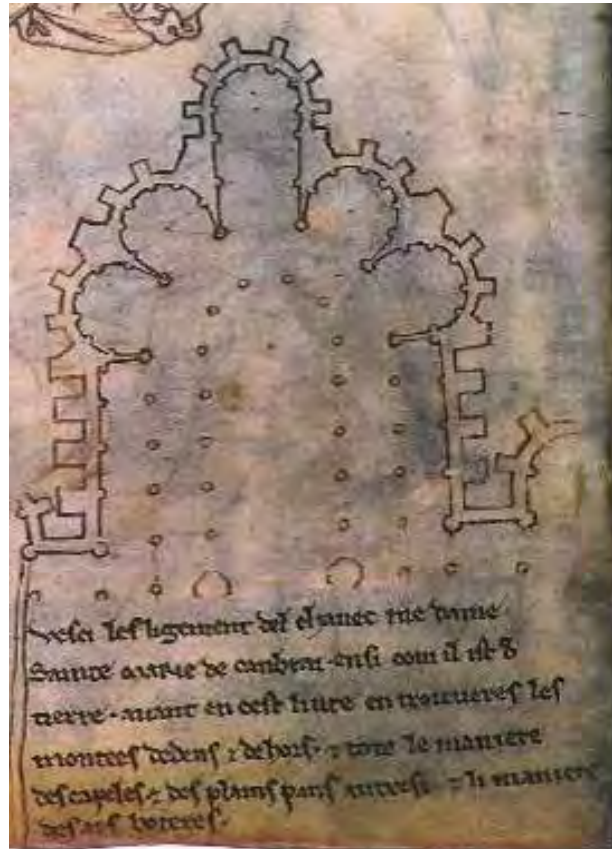 Vesci les ligement del chavec me dame
Sainte Marie de canbrai ensi com il ist de
tierre. avant en cest livre en trouveres les
montees dedens ⁊ dehors. ⁊ tote le maniere
des capeles ⁊ des plains pans autresi. ⁊ li maniere
des ars boteres.